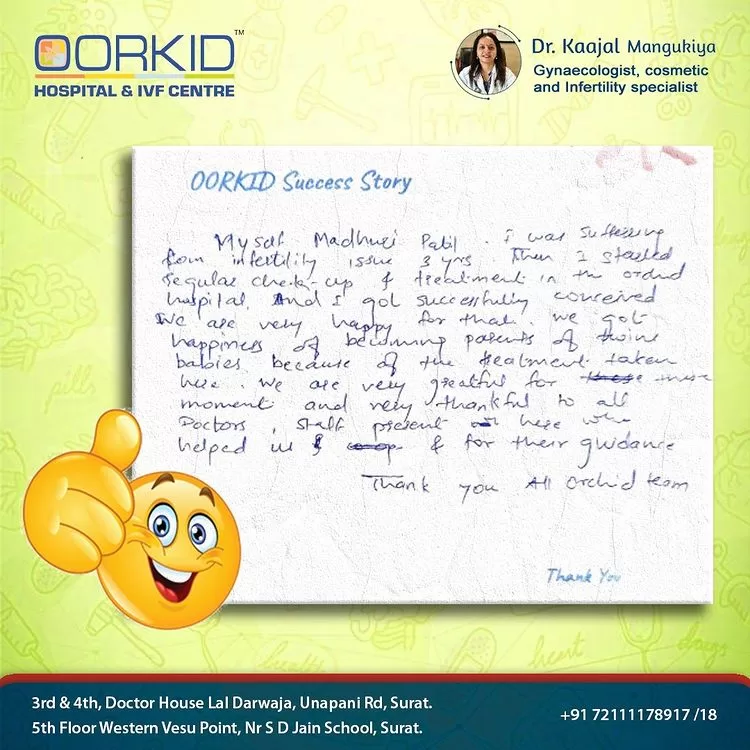 OORKID™
HOSPITAL & IVF CENTRE
Dr. Kaajal Mangukiya
Gynaecologist, cosmetic
and Infertility specialist
OORKID Success Story
Myself Madhuri Patil. I was suffering
from infertility issue 3 yrs. Then I started
regular check-up & treatment in the orchid
hospital. And I got successfully conceived
We are very happy for that. We got
happiness of becoming parents of twins
babies because of the treatment taken
here. We are very greatful for these
moment and very thankful to all
Doctors, staff present here who
helped us & for their guidance
Thank you All Orchid team
Thank You
pills
health
heart
drugs
3rd & 4th, Doctor House Lal Darwaja, Unapani Rd, Surat.
5th Floor Western Vesu Point, Nr S D Jain School, Surat.
+91 72111178917 /18